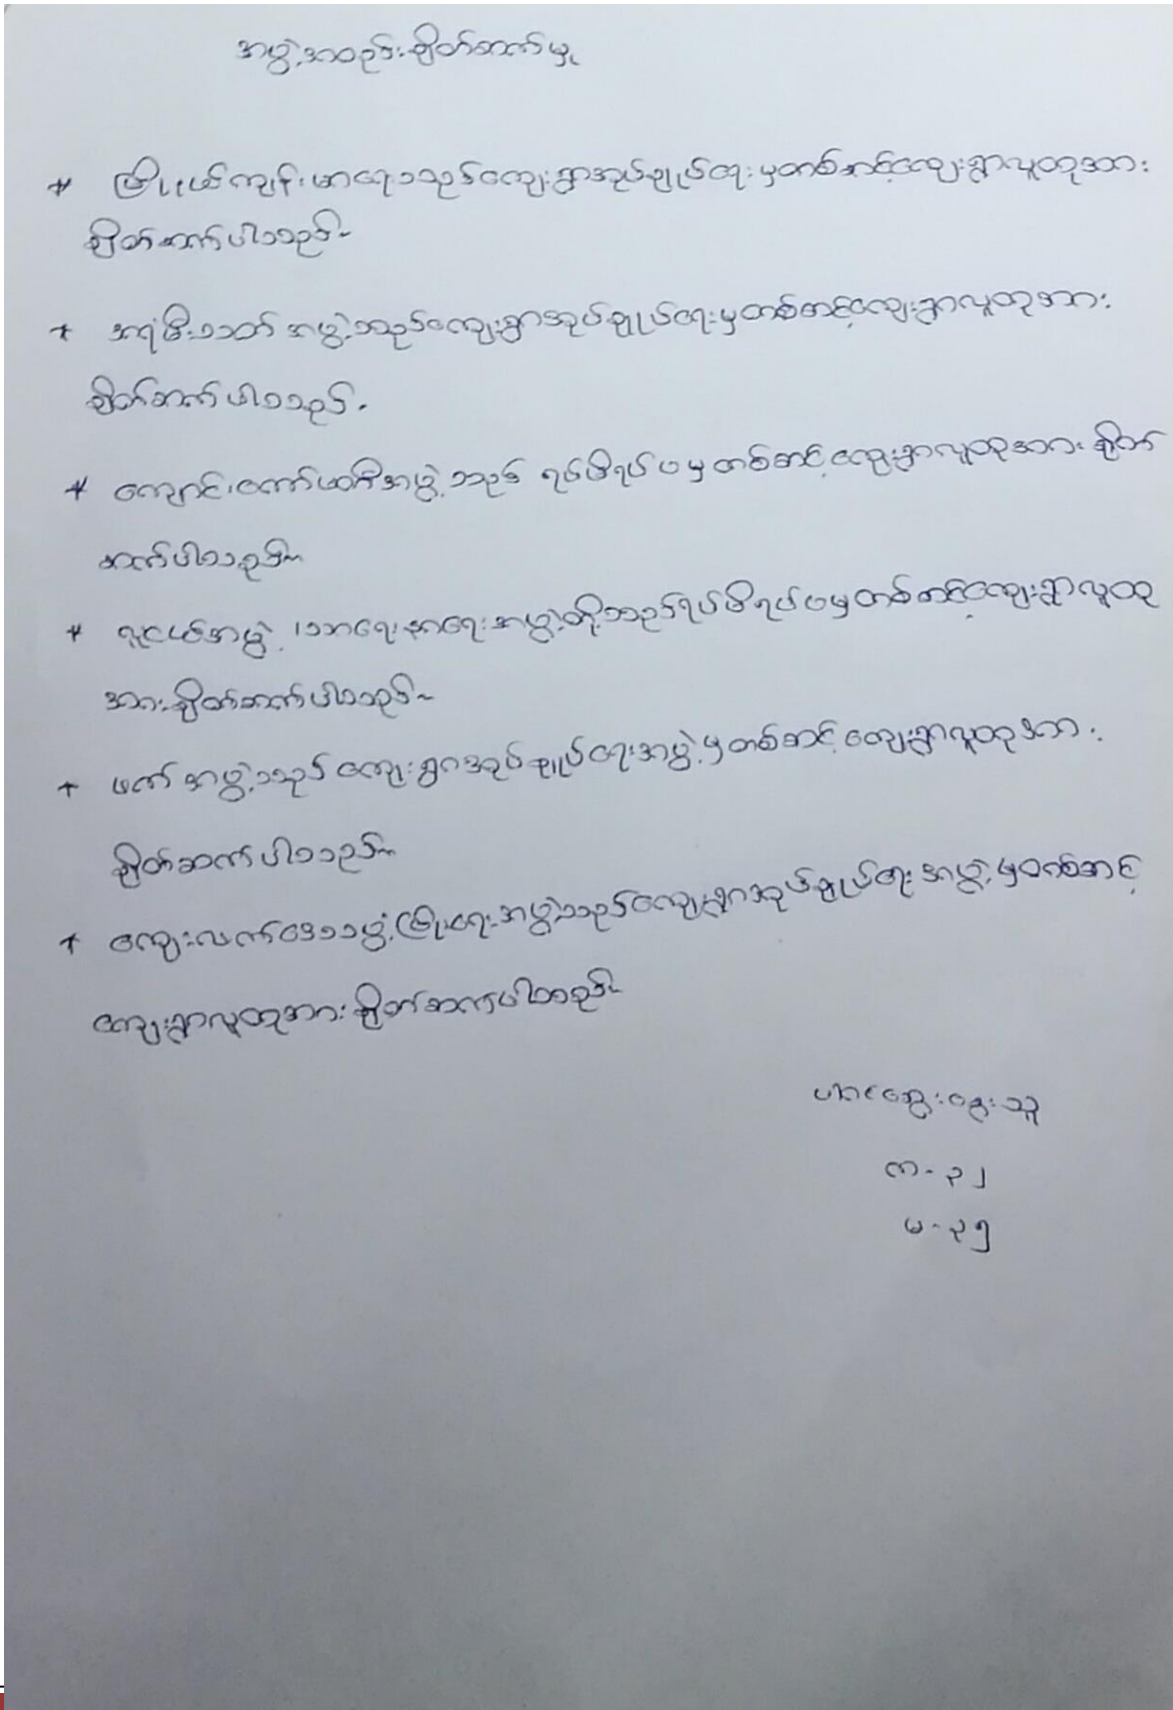 အဖွဲ့အစည်းချိတ်ဆက်မှု
* မြို့နယ်ကျန်းမာရေးသည်ကျေးရွာအုပ်ချုပ်ရေးမှတစ်ဆင့်ကျေးရွာလူထုအား
ချိတ်ဆက်ပါသည်။
* အရံမီးသတ်အဖွဲ့သည်ကျေးရွာအုပ်ချုပ်ရေးမှတစ်ဆင့်ကျေးရွာလူထုအား
ချိတ်ဆက်ပါသည်။
* ကျောင်းကော်မတီအဖွဲ့သည် ရပ်မိရပ်ဖမှတစ်ဆင့်ကျေးရွာလူထုအား ချိတ်
ဆက်ပါသည်။
* လူငယ်အဖွဲ့၊သာရေးနာရေးအဖွဲ့တို့သည်ရပ်မိရပ်ဖမှတစ်ဆင့်ကျေးရွာလူထု
အားချိတ်ဆက်ပါသည်။
* ဖက်အဖွဲ့သည် ကျေးရွာအုပ်ချုပ်ရေးအဖွဲ့မှတစ်ဆင့်ကျေးရွာလူထုအား
ချိတ်ဆက်ပါသည်။
* ကျေးလက်ဒေသဖွံ့ဖြိုးရေးအဖွဲ့သည်ကျေးရွာအုပ်ချုပ်ရေးအဖွဲ့မှတစ်ဆင့်
ကျေးရွာလူထုအားချိတ်ဆက်ပါသည်။
ပါဝင်ဆွေးနွေးသူ
ကာ - ၃၂
မ - ၃၅